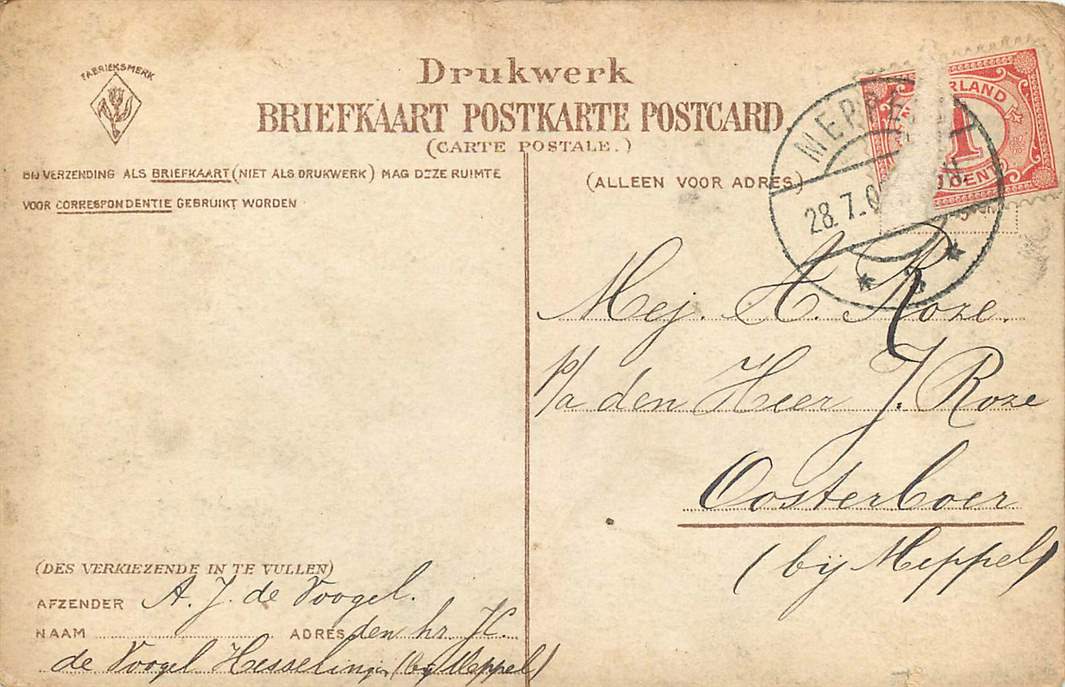 FABRIEKSMERK
Drukwerk
BRIEFKAART POSTKARTE POSTCARD
(CARTE POSTALE.)
BIJ VERZENDING ALS BRIEFKAART (NIET ALS DRUKWERK) MAG DEZE RUIMTE
VOOR CORRESPONDENTIE GEBRUIKT WORDEN
(ALLEEN VOOR ADRES)
MEPPEL
28.7.0
ERLAND
1
CENT
Mej. H. Roze.
p/a den Heer J. Roze
Oosterboer
(bij Meppel)
(DES VERKIEZENDE IN TE VULLEN)
AFZENDER A. J. de Voogel.
NAAM ADRES den hr. H.
de Voogel Hesselingen (bij Meppel)